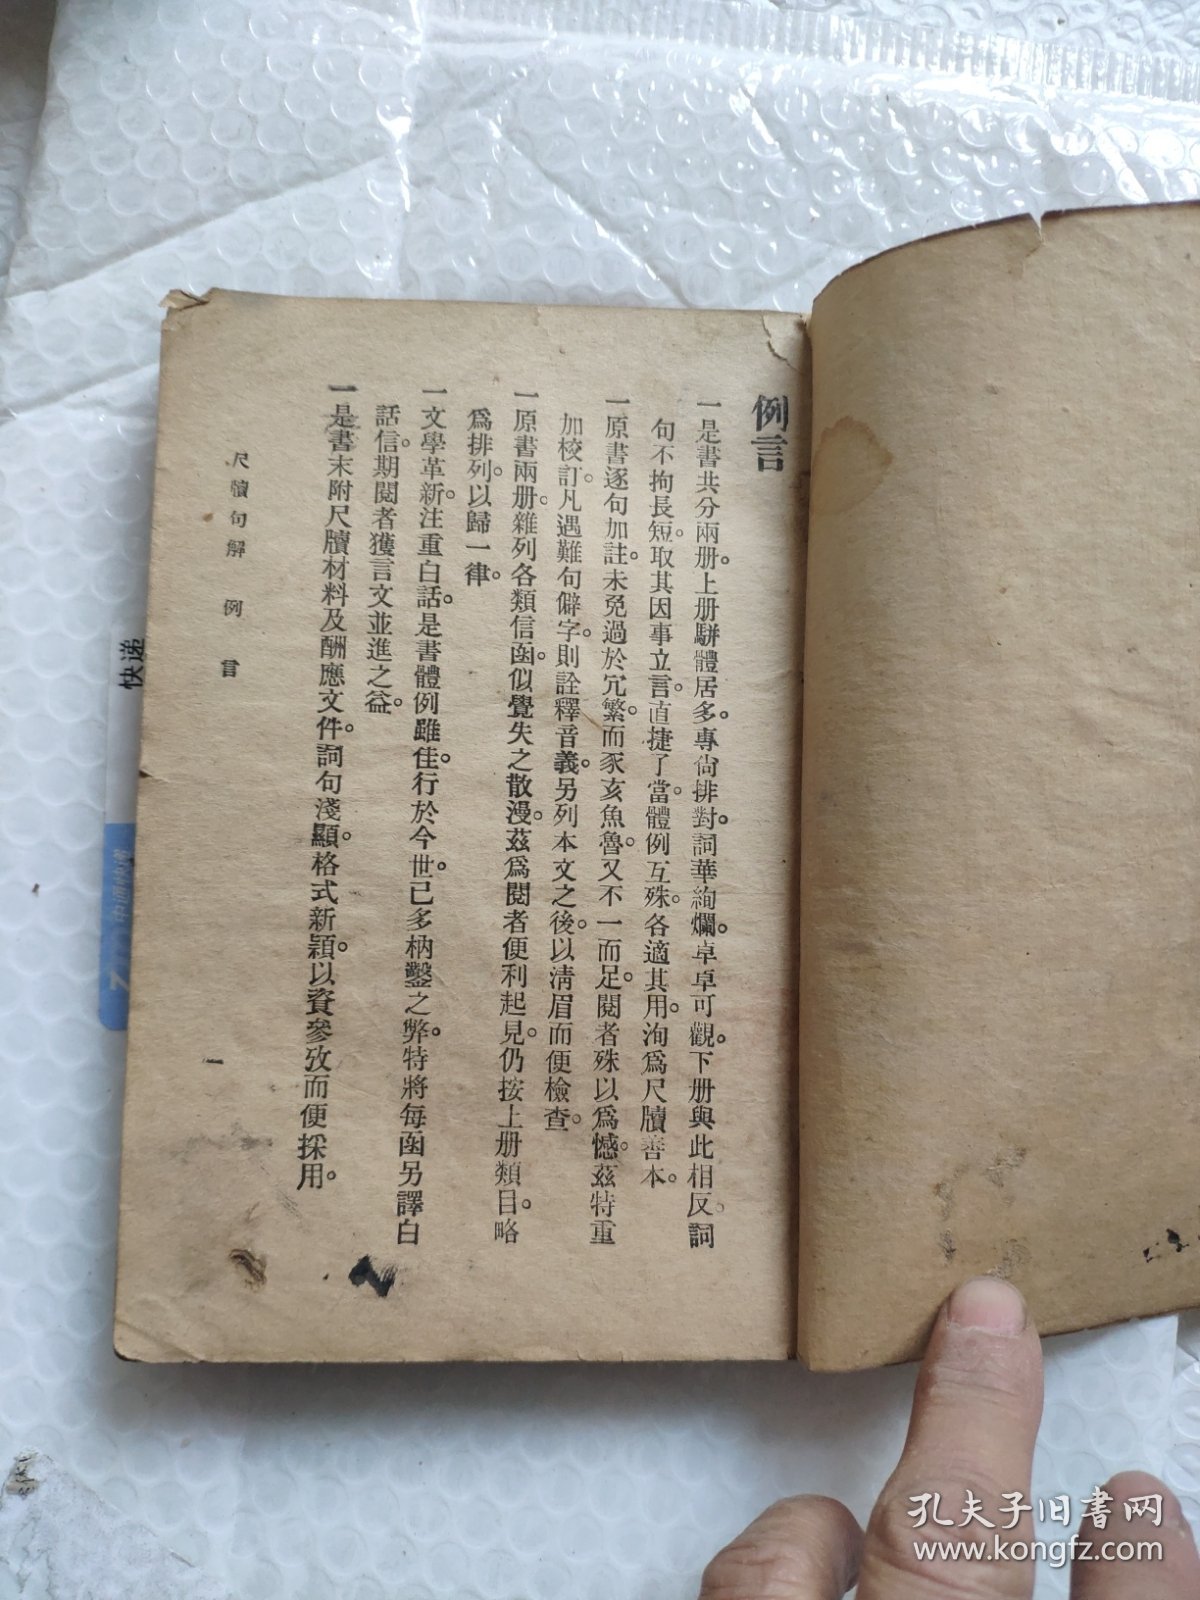 例言
一是書共分兩册。上册駢體居多。專尙排對。詞華絢爛。卓卓可觀。下册與此相反。詞
句不拘長短。取其因事立言。直捷了當。體例互殊。各適其用。洵爲尺牘善本。
一原書逐句加註。未免過於冗繁。而豕亥魚魯。又不一而足。閱者殊以爲憾。茲特重
加校訂。凡遇難句僻字。則詮釋音義。另列本文之後。以淸眉而便檢查。
一原書兩册。雜列各類信函。似覺失之散漫。茲爲閱者便利起見。仍按上册類目。略
爲排列。以歸一律。
一文學革新。注重白話。是書體例雖佳。行於今世。已多枘鑿之弊。特將每函另譯白
話信。期閱者獲言文並進之益。
一是書末附尺牘材料及酬應文件。詞句淺顯。格式新穎。以資參攷而便採用。
尺牘句解 例言
一
快递
中通快递
孔夫子旧书网
www.kongfz.com